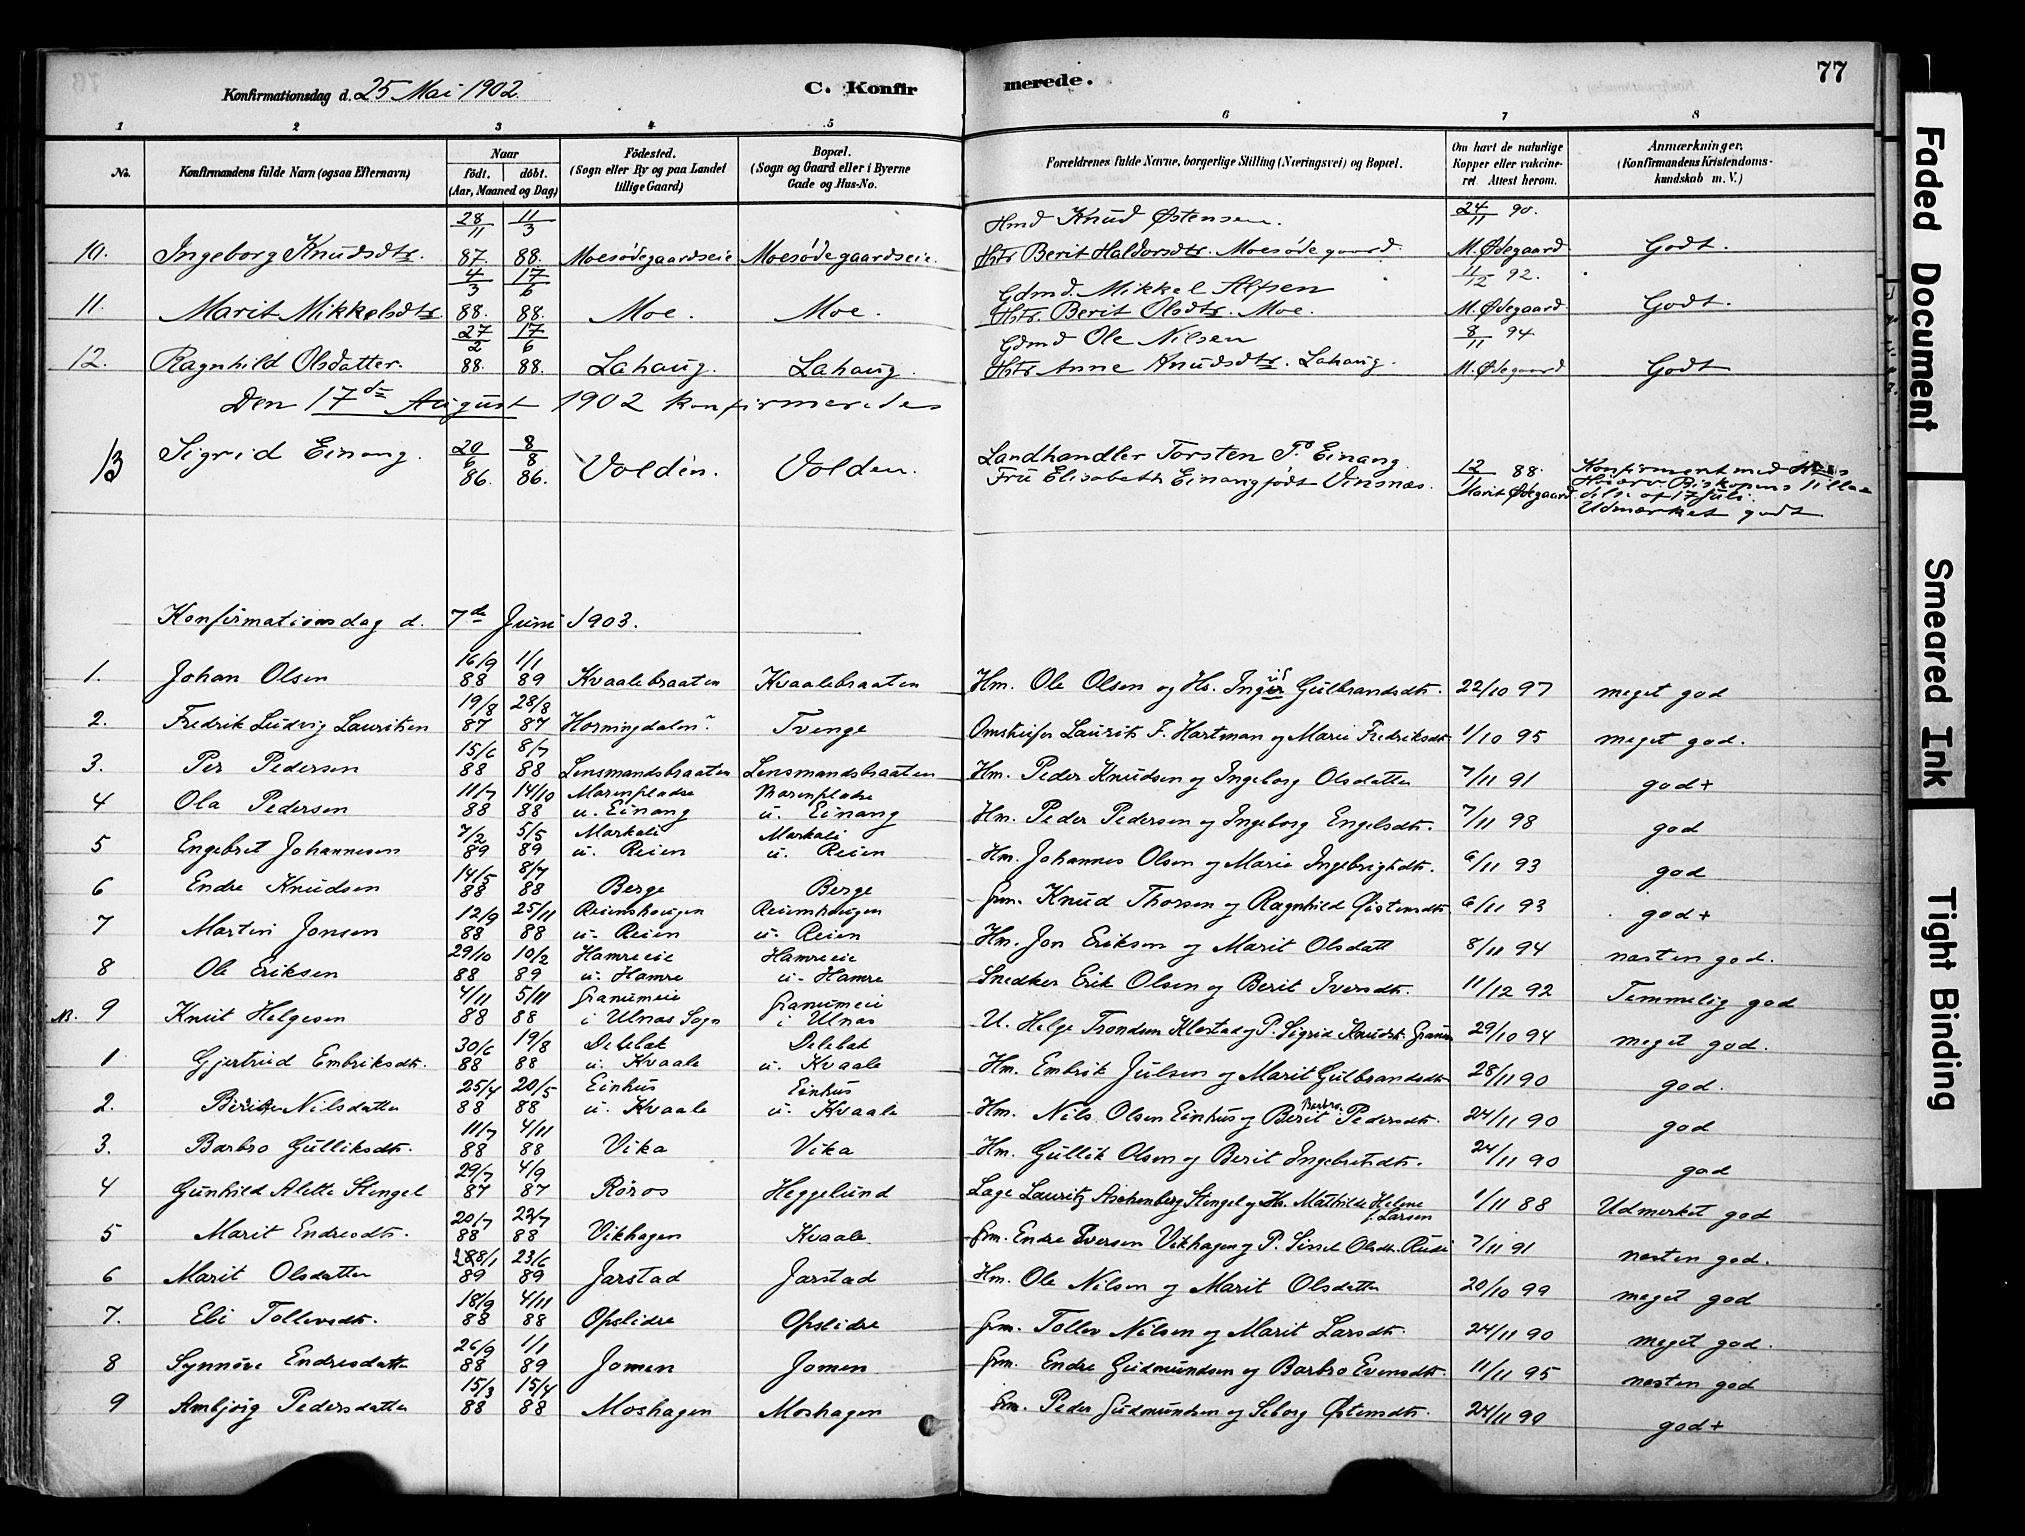 Konfirmationsdag d. 25 Mai 1902
C. Konfirmerede.
77
1 2 3 4 5 6 7 8
No.
Konfirmandens fulde Navn (ogsaa Efternavn)
Naar
födt. döbt.
(Aar, Maaned og Dag)
Födested.
(Sogn eller By og paa Landet
tillige Gaard)
Bopæl.
(Sogn og Gaard eller i Byerne
Gade og Hus-No.
Forældrenes fulde Navne, borgerlige Stilling (Næringsvei) og Bopæl.
Om havt de naturlige
Kopper eller vakcine-
ret. Attest herom.
Anmærkninger.
(Konfirmandens Kristendoms-
kundskab m. V.)
28/11 11/3 Hmd Knud Østensen. 24/11 90.
10. Ingeborg Knudsdtr. 87. 88. Moesødegaardseie Moesødegaardseie. Hstr Berit Haldorsdtr. Moesødegaard M. Ødegaard Godt.
4/3 17/6 Gdmd. Mikkel Alfsen 11/12 92.
11. Marit Mikkelsdtr 88. 88. Moe. Moe. Hstr. Berit Olsdtr. Moe. M. Ødegaard Godt.
27/2 17/6 Gdmd Ole Nilsen 8/11 94
12. Ragnhild Olsdatter. 88. 88. Lahaug. Lahaug. Hstr Anne Knudsdtr. Lahaug. M. Ødegaard Godt
Den 17de August 1902 konfirmeredes
13 Sigrid Einang. 20/6 86. 8/8 86. Volden. Volden. Landhandler Torsten T. Einang
Fru Elisabeth Einang født Vinsnæs. 12/11 88. Marit Ødegaard
Konfirment med
Biskopens tilla-
delse af 17 Juli.
Udmærket godt
Konfirmationsdag d. 7de Juni 1903.
1. Johan Olsen 16/9 88 1/1 89 Kvaalebraaten Kvaalebraaten Hm. Ole Olsen og Hs. Inger Gulbrandsdtr. 22/10 97 meget god
2. Fredrik Ludvig Lauritsen 19/8 87 28/8 87 Horningdalen Tvenge Laurits F. Hartman og Marie Fredriksdtr 1/10 95 meget god.
3. Per Pedersen 15/6 88 8/7 88 Lensmandsbraaten Lensmandsbraaten Hm. Peder Knudsen og Ingeborg Olsdatter 7/11 91 god+
4 Ola Pedersen 11/7 88 14/10 88 u. Einang u. Einang Hm. Peder Pedersen og Ingeborg Engelsdtr. 7/11 98 god
5 Engebret Johannesen 7/2 89 5/5 89 Markali u. Reien Markali u. Reien Hm. Johannes Olsen og Marie Ingebrigtsdtr. 6/11 93 god
6 Endre Knudsen 14/5 88 8/7 88 Berge Berge Grm. Knud Thorsen og Ragnhild Østensdtr 6/11 93 god+
7 Martin Jonsen 12/9 88 25/11 88 Reienshaugen u. Reien Reienshaugen u. Reien Hm. Jon Eriksen og Marit Olsdatt 8/11 94 nasten god.
8 Ole Eriksen 29/10 88 10/2 89 Hamreeie u. Hamre Hamreeie u. Hamre Snedker Erik Olsen og Berit Iversdtr. 11/12 92 Temmelig god
NB. 9 Knut Helgesen 4/11 88 5/11 88 Granumeie i Ulnæs Sogn Granumeie i Ulnæs U. Helge Trondsen Klostad og P. Sigrid Knudsdtr. Granum 29/10 94 meget god.
1 Gjertrud Embriksdtr. 30/6 88 19/8 88 Delebæk u. Kvaale Delebæk u. Kvaale Hm. Embrik Julsen og Marit Gulbrandsdtr 28/11 90 god.
2. Berit Nilsdatter 25/4 88 20/5 88 Einhus u. Kvaale Einhus u. Kvaale Hm. Nils Olsen Einhus og Berit Barbro Pedersdtr. 24/11 90 god
3. Barbro Gulliksdtr. 11/7 88 4/11 88 Vika Vika Hm. Gullik Olsen og Berit Ingebretsdtr. 24/11 90 god
4 Gunhild Alette Stengel 29/7 87 4/9 87 Røros Heggelund Læge Lauritz Aschenberg Stengel og Hs. Mathilde Helene f. Larsen 1/11 88 Udmerket god
5 Marit Endresdtr. 20/7 88 22/7 88 Vikhagen Kvaale Grm. Endre Iversen Vikhagen og P. Sissel Olsdtr. Rudi 7/11 91 nesten god.
6 Marit Olsdatter 28/1 89 23/6 89 Jarstad Jarstad Hm. Ole Nilsen og Marit Olsdatter 20/10 99 meget god
7. Eli Tollevsdtr. 18/9 88 4/11 88 Opslidre Opslidre Grm. Tollev Nilsen og Marit Larsdtr. 24/11 90 meget god.
8 Synnøve Endresdatter 26/9 88 1/1 89 Jomen Jomen Grm. Endre Gudmundsen og Barbro Evensdtr. 11/11 95 nesten god
9 Ambjørg Pedersdatter 15/3 88 15/4 88 Moshagen Moshagen Grm. Peder Gudmundsen og Seborg Østensdtr. 24/11 90 god+
Faded Document
Smeared Ink
Tight Binding